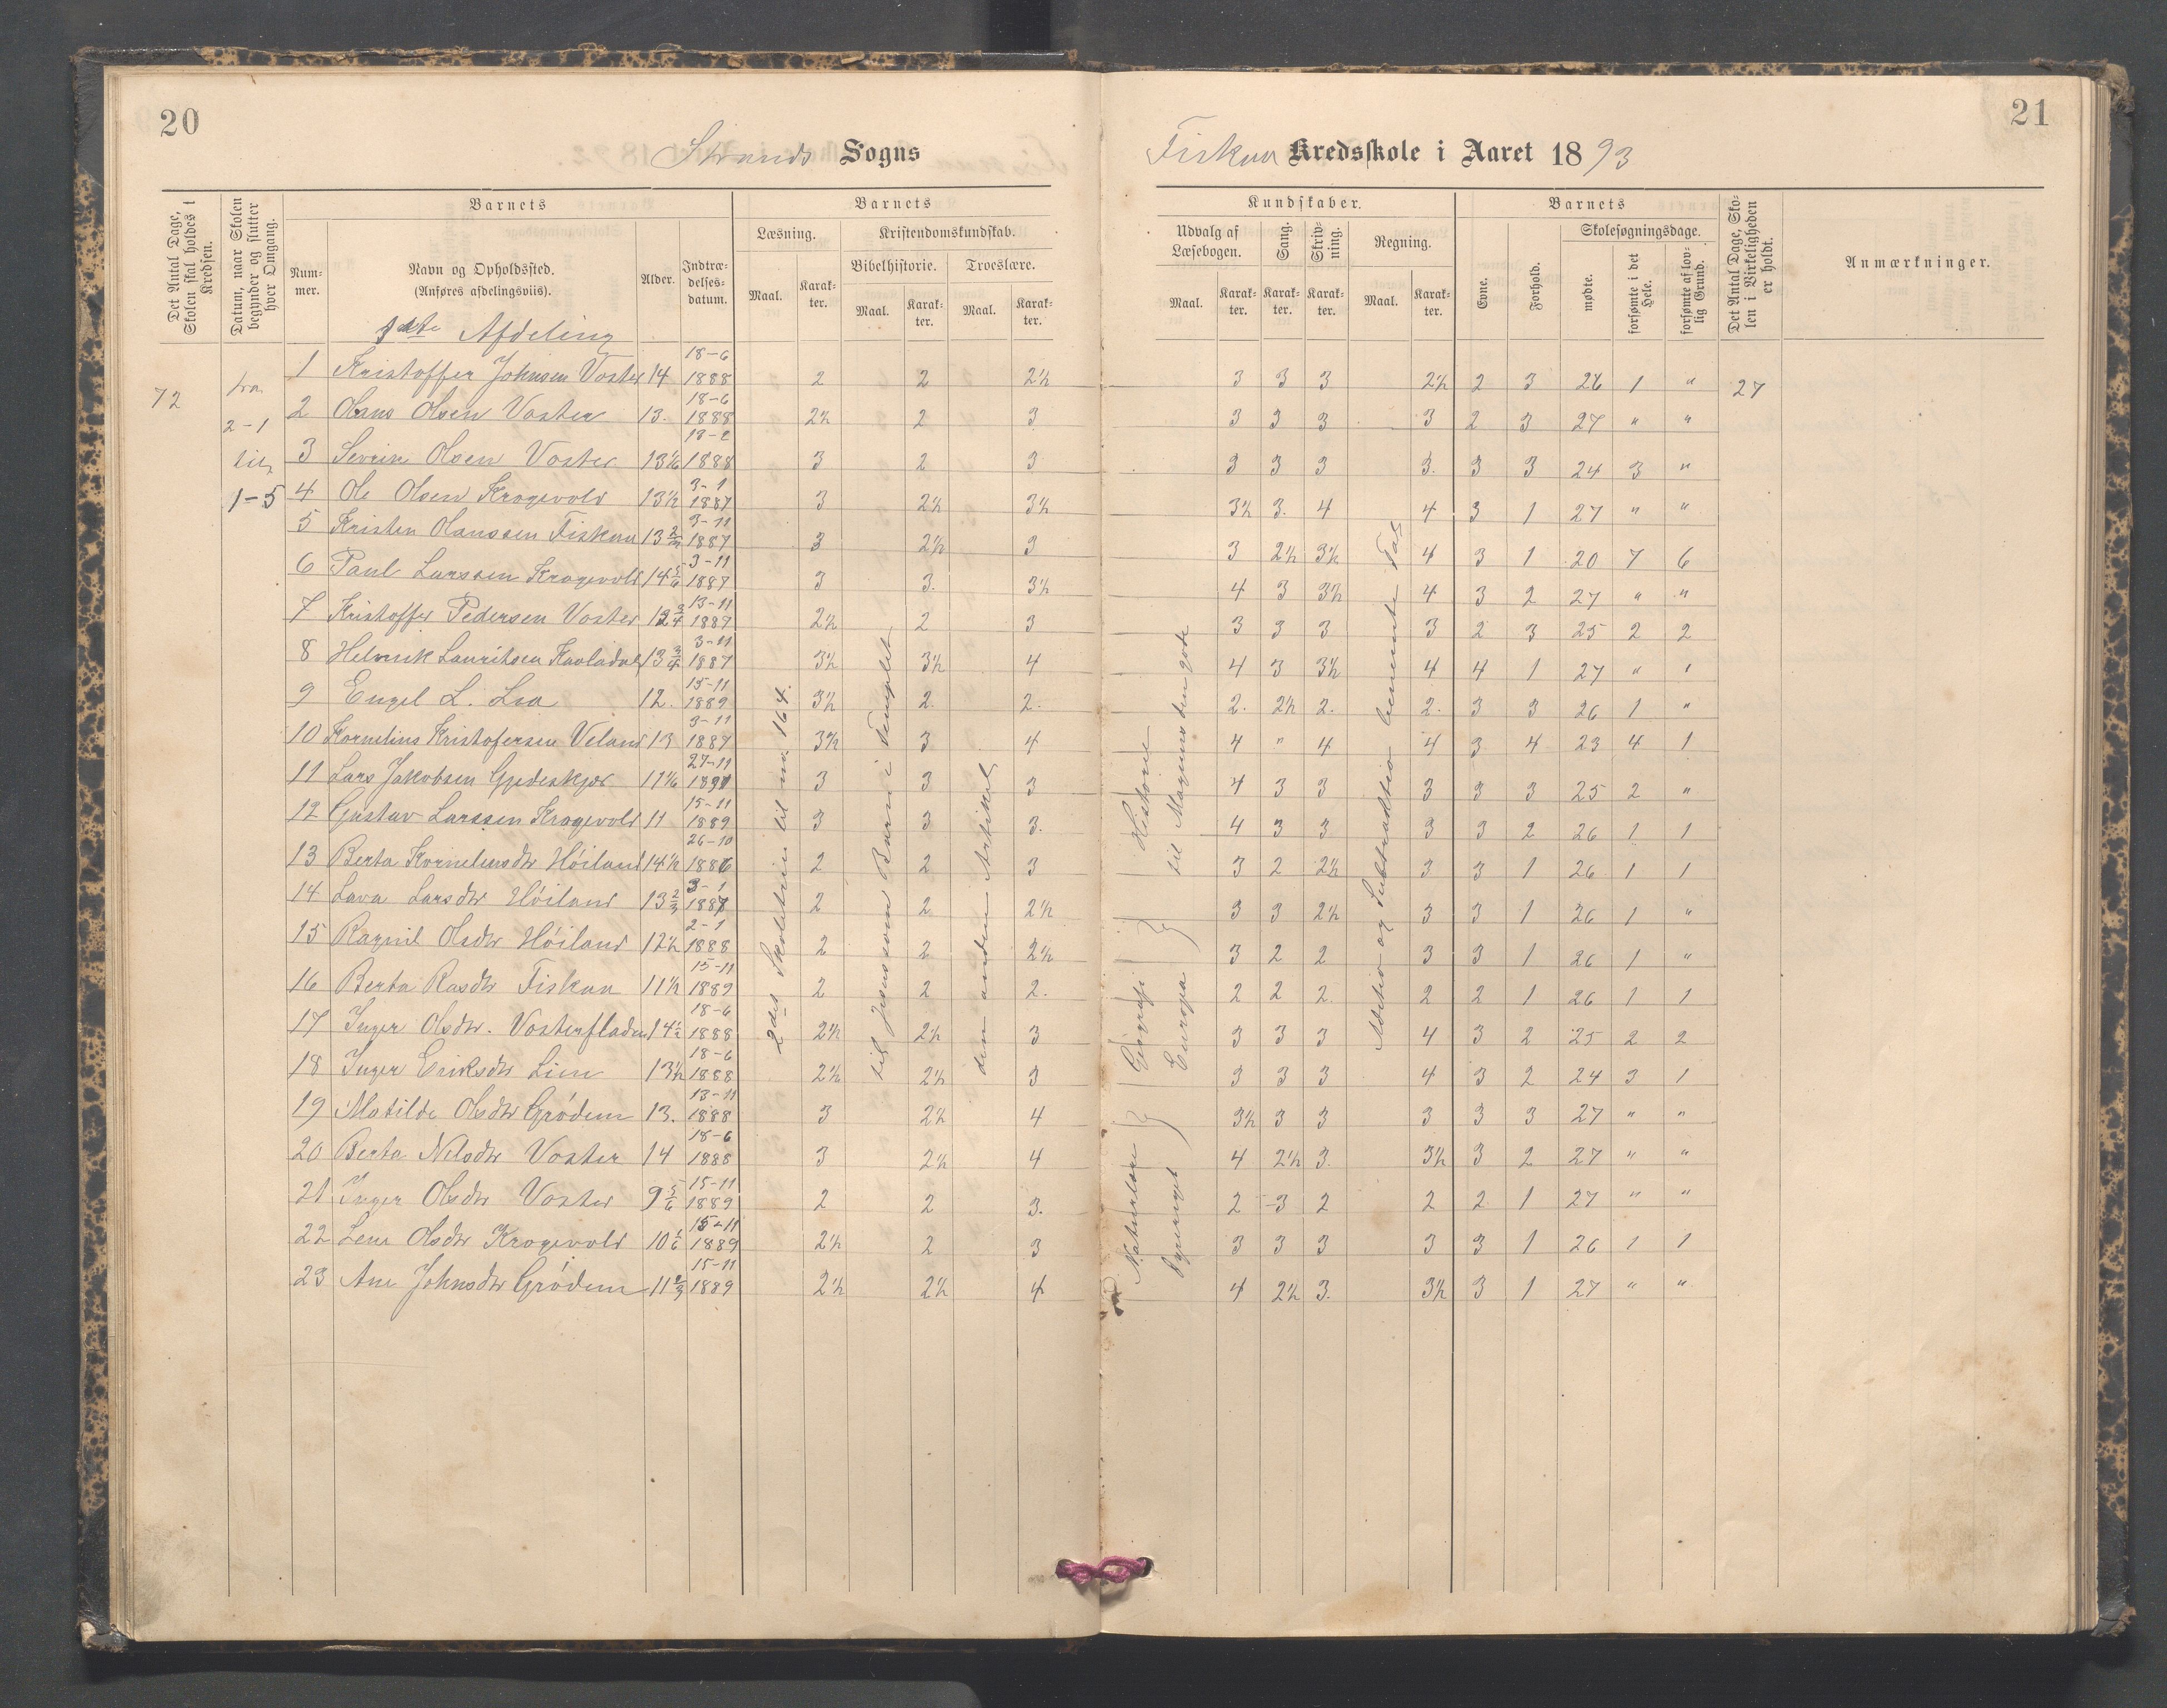 20
21
Strands Sogns
Fiskaa Kredsskole i Aaret 1893
Det Antal Dage, Skolen skal holdes i Kredsen.
Datum, naar Skolen begynder og slutter hver Omgang.
Barnets
Num-mer.
Navn og Opholdssted.
(Anføres afdelingsviis).
Alder.
Indtræ-delses-datum.
Barnets
Læsning.
Maal.
Karak-ter.
Kristendomskundskab.
Bibelhistorie.
Maal.
Karak-ter.
Troeslære.
Maal.
Karak-ter.
Kundskaber.
Udvalg af Læsebogen.
Maal.
Karak-ter.
Sang.
Karak-ter.
Skriv-ning.
Karak-ter.
Regning.
Maal.
Karak-ter.
Barnets
Evne.
Forhold.
Skolesøgningsdage.
mødte.
forsømte i det Hele.
forsømte af lov-lig Grund.
Det Antal Dage, Sko-len i Virkeligheden er holdt.
Anmærkninger.
Afdeling
72
fra
2-1
til
1-5
1 Kristoffer Johnsen Voster 14 18-6 1888 2 2 2½ 3 3 3 2½ 2 3 26 1 " 27
2 Olaus Olsen Voster 13. 18-6 1888 2½ 2 3 3 3 3 3 2 3 27 " "
3 Severin Olsen Voster 13 1/6 18-2 1888 3 2 3 3 3 3 3. 3 3 24 3 "
4 Ole Olsen Krogevold 13½ 3-1 1887 3 2½ 3½ 3½ 3. 4 4 3 1 27 " "
5 Kristen Olaussen Fiskaa 13 2/3 3-11 1887 3 2½ 3 3 2½ 3½ 4 3 1 20 7 6
6 Paul Larssen Krogevold 14 5/6 3-11 1887 3 3. 3½ 4 3 3½ 4 3 2 27 " "
7 Kristoffer Pedersen Voster 12 3/4 13-11 1889 2½ 2 3 3 3 3 3 2 3 25 2 2
8 Helmik Lauritsen 13 3/4 3-11 1887 3½ 3½ 4 4 3 3½ 4 4 1 27 " "
9 Engel L. Lea 12. 15-11 1889 3½ 2. 2. 2. 2½ 2. 2. 3 3 26 1 "
10 Kornelius Kristofersen Veland 13 3-11 1887 3½ 3 4 4 " 4 4 3 4 23 4 1
11 Lars Jakobsen Gjedeskjær 11 1/6 27-11 1891 3 3 3 4 3 3 3 3 3 25 2 "
12 Gustav Larssen Krogevold 11 15-11 1889 3 3 3. 4 3 3 3 3 2 26 1 1
13 Berta Korneliusdtr Høiland 14½ 26-10 1886 2 2 3 3 2 2½ 3 3 1 26 1 1
14 Lava Larsdtr Høiland 13 2/3 3-1 1887 2 2 2½ 3 3 2½ 3 3 1 26 1 "
15 Ragnil Olsdtr Høiland 12½ 2-1 1888 2 2 2½ 3 2 2 3 3 1 26 1 "
16 Berta Rasdtr Fiskaa 11½ 15-11 1889 2 2 2. 2 2 2. 2 2 1 26 1 1
17 Inger Olsdtr. Vosterfladen 14½ 18-6 1888 2½ 2½ 3 3 3 3 4 3 2 25 2 2
18 Inger Eriksdtr Lien 13½ 18-6 1888 2½ 2½ 3 3 3 3 4 3 2 24 3 1
19 Matilde Olsdtr Grødem 13. 13-11 1888 3 2½ 4 3½ 3 3 3 3 3 27 " "
20 Berta Nilsdtr Voster 14 18-6 1888 3 2½ 4 4 2½ 3. 3½ 3 2 27 " "
21 Inger Olsdtr Voster 9 5/6 15-11 1889 2 2 3. 2 3 2 2 2 1 27 " "
22 Lene Olsdtr Krogevold 10 1/6 15-11 1889 2½ 2 3 3 3 3 3 3 1 26 1 1
23 Ane Johnsdtr Grødem 11 2/3 15-11 1889 2½ 2½ 4 4 2½ 3. 3½ 3 1 27 " "
2det Skoletrin til nr. 164.
til Jesus som Barn i Templet
den anden Artikel
Historie
til Magnus den gode
Geografi
Europa
Naturlære
Addition og Subtraktion benævnte Tal